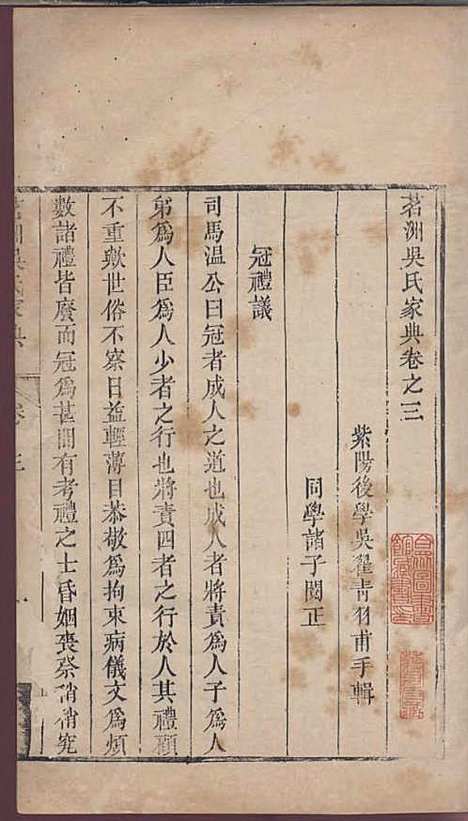 茗洲吳氏家典卷之三
紫陽後學吳翟青羽甫手輯
同學諸子閱正
冠禮議
司馬溫公曰冠者成人之道也成人者將責爲人子爲人
弟爲人臣爲人少者之行也將責四者之行於人其禮顧
不重歟世俗不察日益輕薄目恭敬爲拘束病儀文爲煩
數諸禮皆廢而冠爲甚間有考禮之士昏姻喪祭稍稍究
茗洲吳氏家典 卷三 一